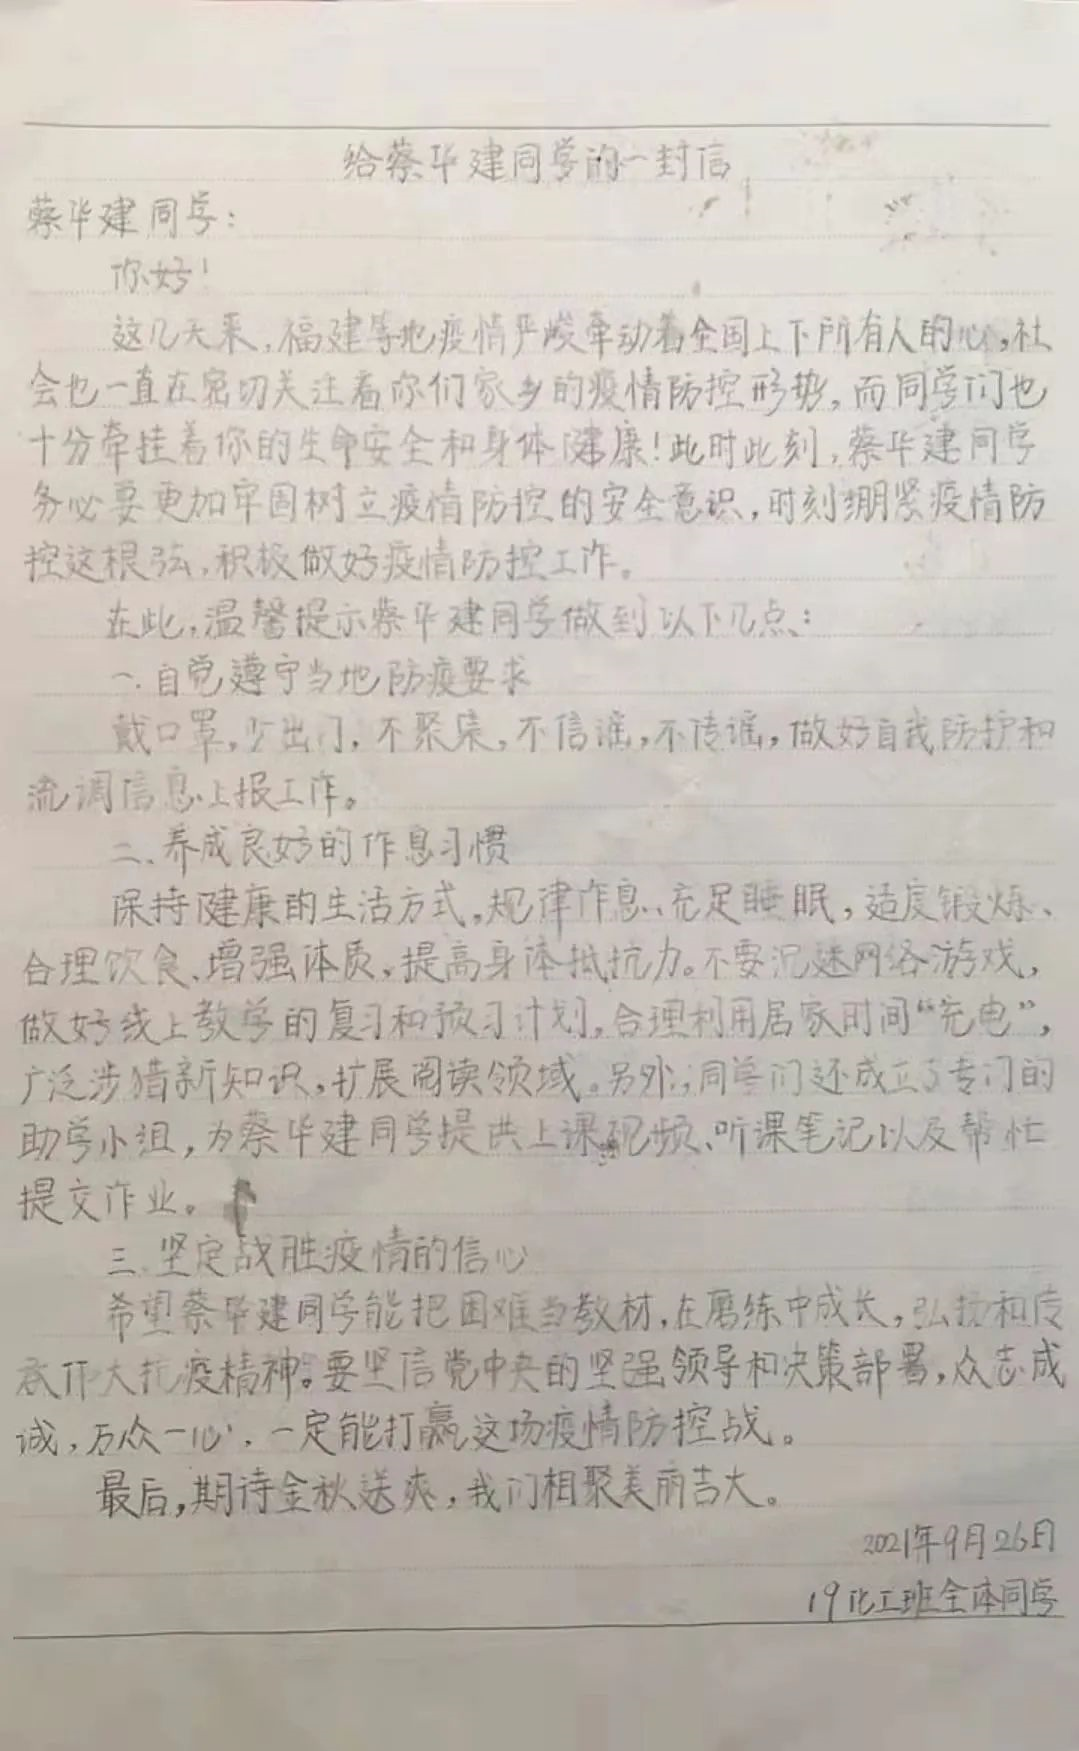 给蔡华建同学的一封信
蔡华建同学：
你好！
这几天来，福建等地疫情严峻牵动着全国上下所有人的心，社
会也一直在密切关注着你们家乡的疫情防控形势，而同学们也
十分牵挂着你的生命安全和身体健康！此时此刻，蔡华建同学
务必要更加牢固树立疫情防控的安全意识，时刻绷紧疫情防
控这根弦，积极做好疫情防控工作。
在此，温馨提示蔡华建同学做到以下几点：
一.自觉遵守当地防疫要求
戴口罩，少出门，不聚集，不信谣，不传谣，做好自我防护和
流调信息上报工作。
二、养成良好的作息习惯
保持健康的生活方式，规律作息、充足睡眠，适度锻炼、
合理饮食、增强体质，提高身体抵抗力。不要沉迷网络游戏，
做好线上教学的复习和预习计划，合理利用居家时间“充电”，
广泛涉猎新知识，扩展阅读领域。另外，同学们还成立了专门的
助学小组，为蔡华建同学提供上课视频、听课笔记以及帮忙
提交作业。
三.坚定战胜疫情的信心
希望蔡华建同学能把困难当教材，在磨练中成长，弘扬和传
承伟大抗疫精神。要坚信党中央的坚强领导和决策部署，众志成
诚，万众一心，一定能打赢这场疫情防控战。
最后，期待金秋送爽，我们相聚美丽吉大。
2021年9月26日
19化工班全体同学